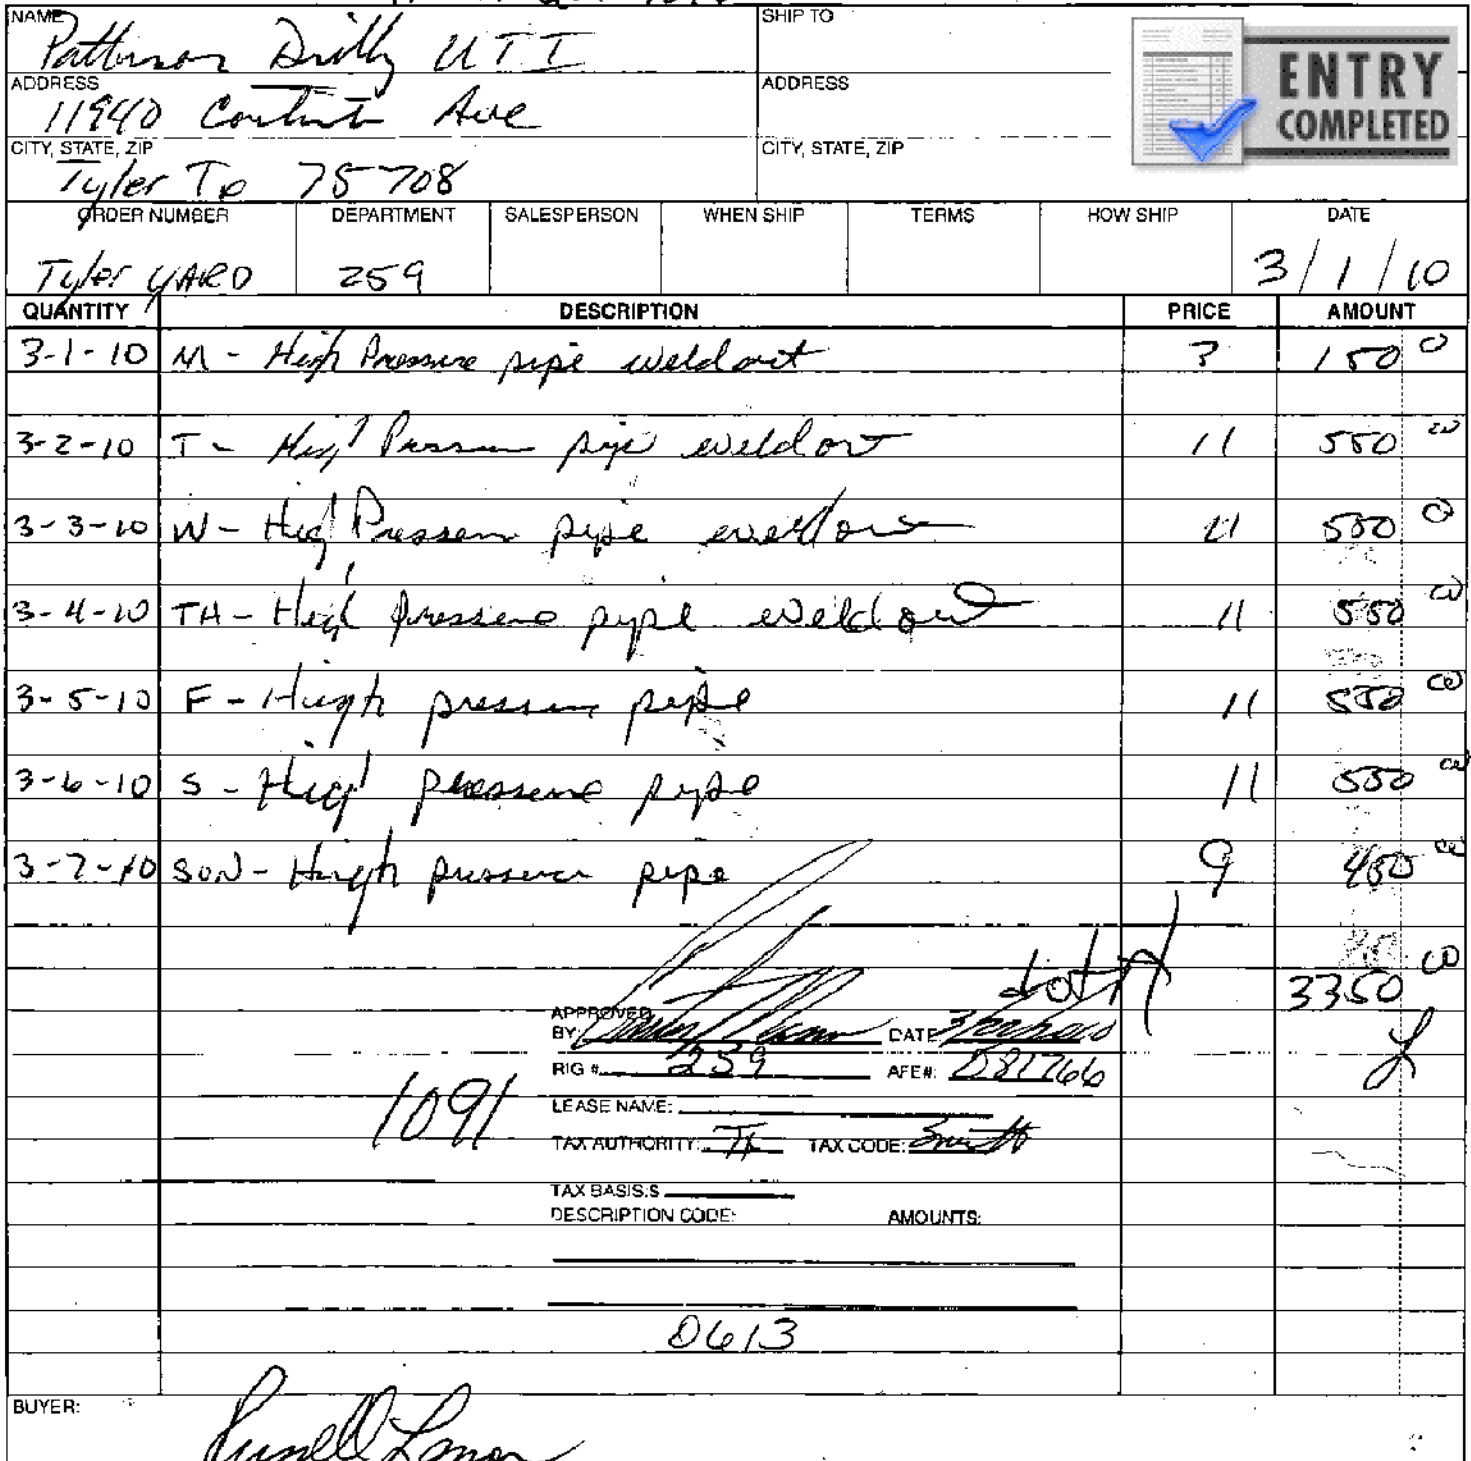 NAME
Patterson Drilly UTI
SHIP TO
ENTRY
COMPLETED
ADDRESS
11940 Ave
ADDRESS
CITY, STATE, ZIP
Tyler Tx 75708
CITY, STATE, ZIP
ORDER NUMBER DEPARTMENT SALESPERSON WHEN SHIP TERMS HOW SHIP DATE
Tyler YARD 259 3/1/10
QUANTITY DESCRIPTION PRICE AMOUNT
3-1-10 M - High Pressure pipe weld out 3 150 00
3-2-10 T - High Pressure pipe weld out 11 550 00
3-3-10 W - High Pressure pipe weld out 11 550 00
3-4-10 TH - High pressure pipe weld out 11 550 00
3-5-10 F - High pressure pipe 11 550 00
3-6-10 S - High pressure pipe 11 550 00
3-7-10 SUN - High pressure pipe 9 450 00
total 3350 00
APPROVED
BY: DATE
RIG # 259 AFE#: D81766
1091
LEASE NAME:
TAX AUTHORITY: TX TAX CODE: Smith
TAX BASIS:$
DESCRIPTION CODE: AMOUNTS:
0613
BUYER: